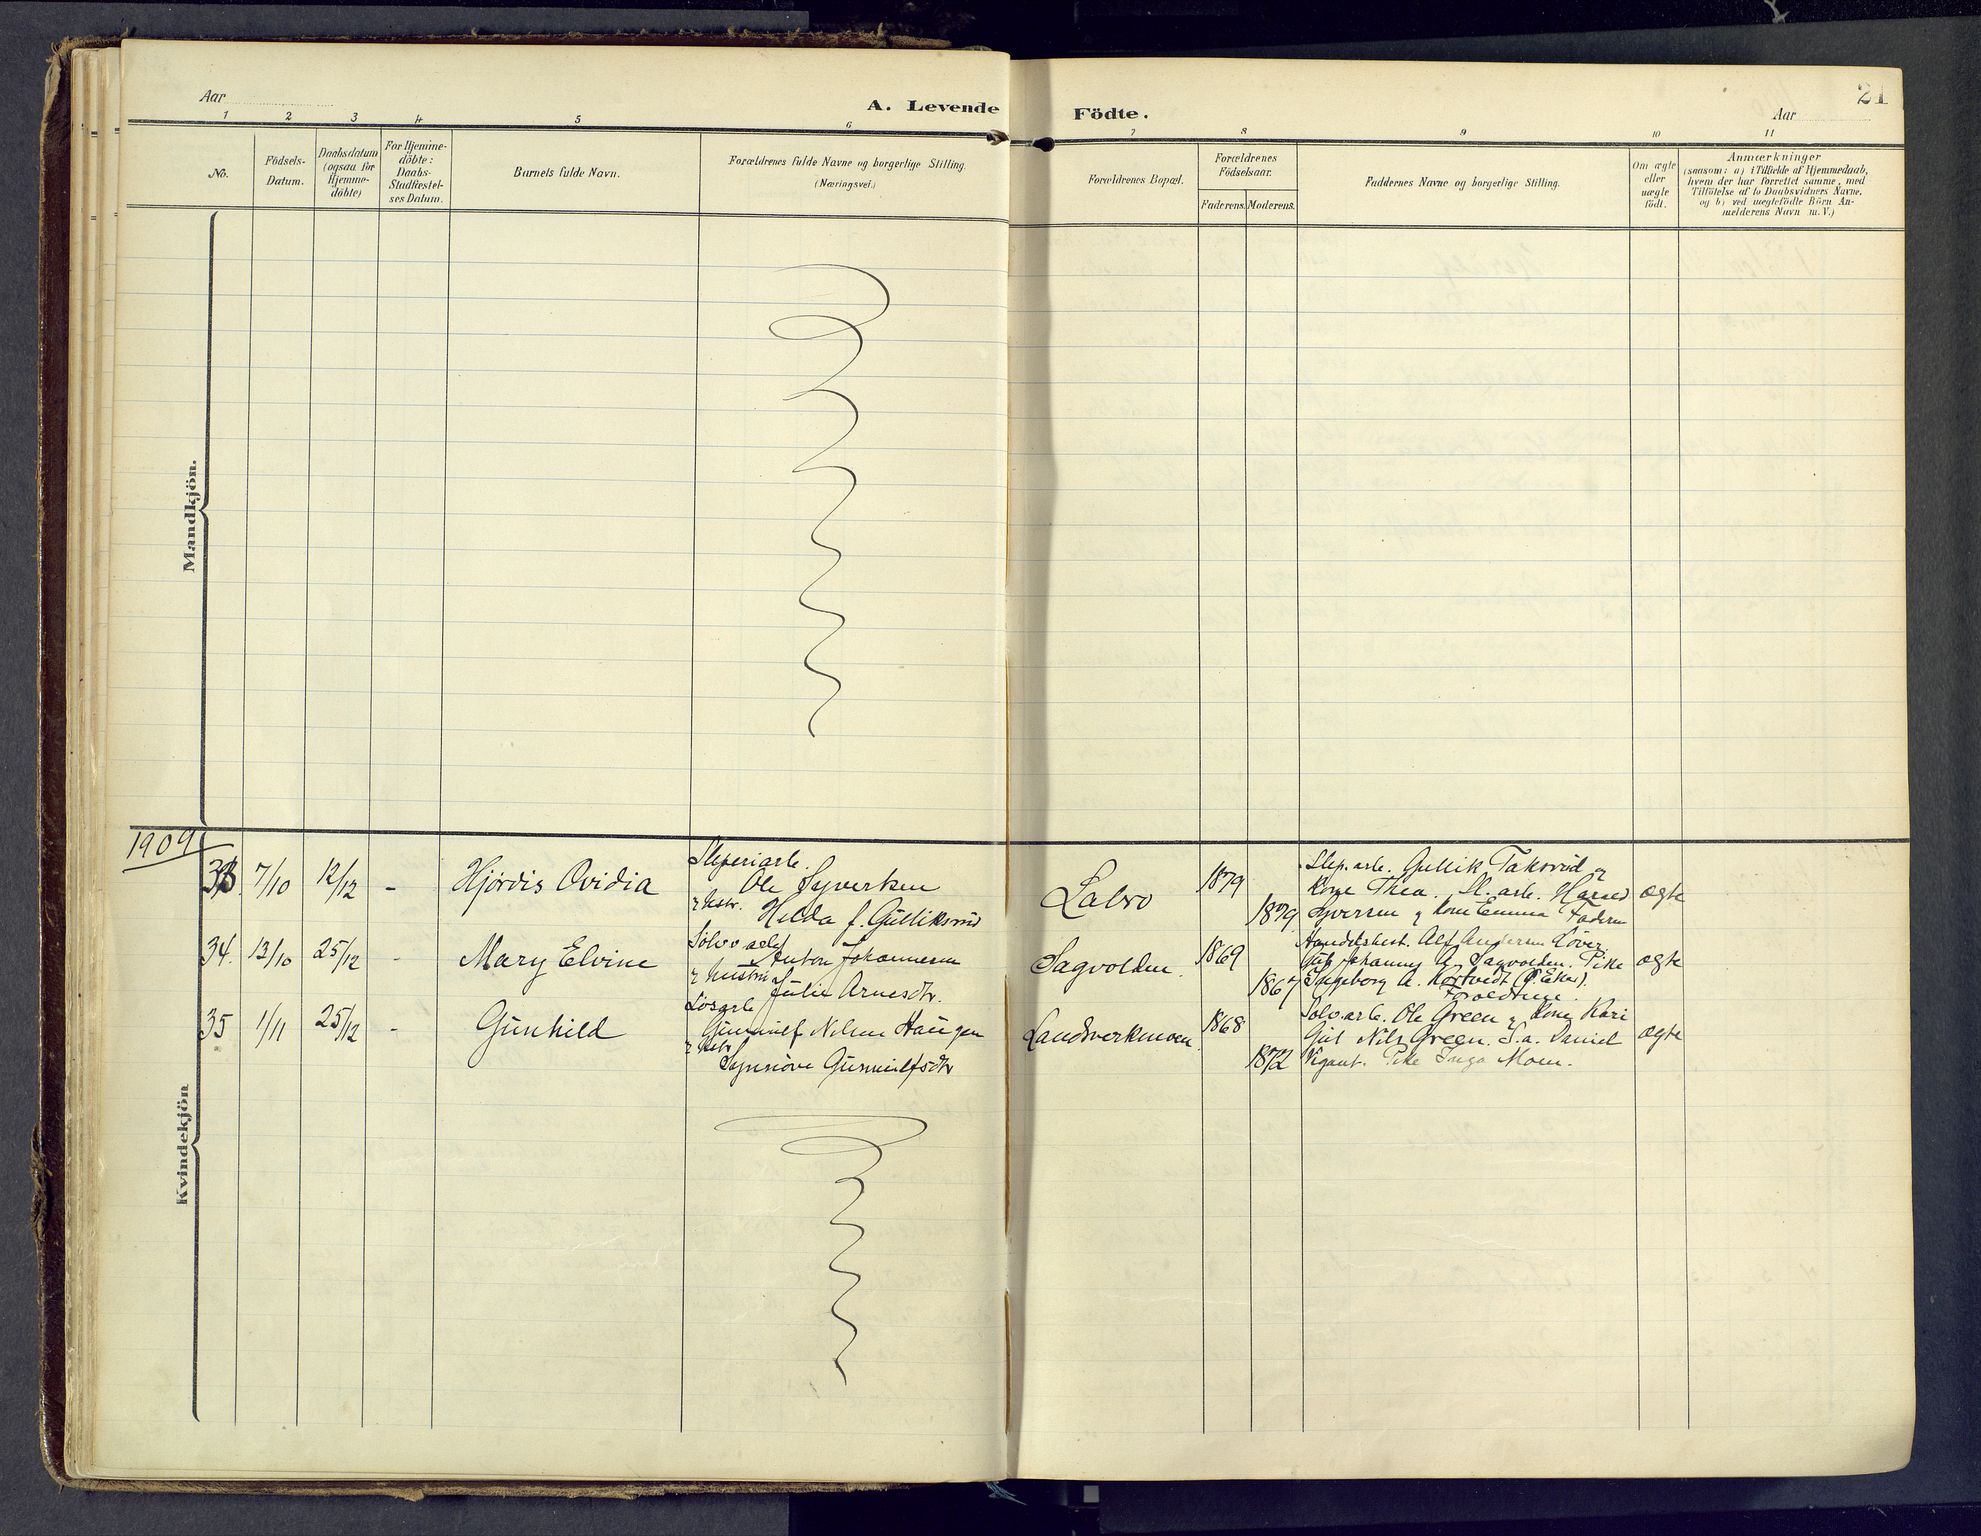 21
Aar
A. Levende
Födte.
Aar
1 2 3 4 5 6 7 8 9 10 11
No.
Födsels-
Datum.
Daabsdatum
(ogsaa for
Hjemme-
döbte)
For Hjemme-
döbte:
Daabs-
Stadfæstel-
ses Datum.
Barnets fulde Navn.
Forældrenes fulde Navne og borgerlige Stilling.
(Næringsvei.)
Forældrenes Bopæl.
Forældrenes
Födselsaar.
Faderens.
Moderens.
Faddernes Navne og borgerlige Stilling.
Om ægte
eller
uægte
födt.
Anmærkninger
(saasom: a) i Tilfælde af Hjemmedaab,
hvem der har forrettet samme, med
Tilföielse af to Daabsvidners Navne.
og b) ved uægtefödte Börn An-
melderens Navn m. V.)
Mandkjön.
Kvindekjön
1909
33. 7/10 12/12 - Hjördis Ovidia
Sliperiarb.
Ole Syvertsen
Hilda f. Gulliksrud
Labro
1879
1879
Slip. arb. Gullik Taksrud
Kone Thea. Sl. arb. Harald
Syversen Kone Emma Faderen
ægte
34. 13/10 25/12 - Mary Elvine
Sölvv arb
Anton Johannesen
Hustru
Julie Arnesdtr.
Sagvolden.
1869
1867
Handelsbest. Alf Andersen
Johannes A. Sagvolden. Pike
Ingeborg A. Kortvedt
Forældrene.
ægte
35 1/11 25/12 - Gunhild
Lösarb
Gunnulf Nilsen Haugen
Synnöve Gunnulfsdtr
Landsverkmoen
1868
1872
Sölvarb. Ole Green Kone Kari
Nils Green. S.a. Daniel
Vigant. Pike Inga Moen.
ægte